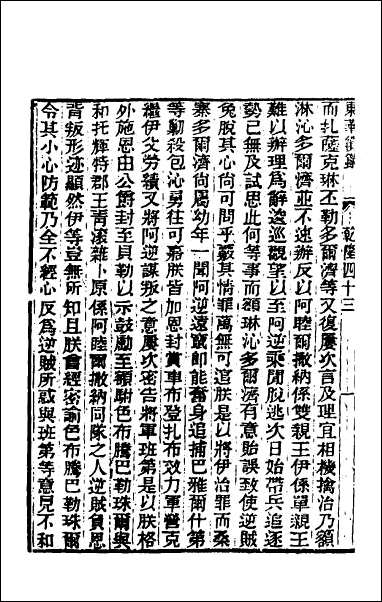 東華續錄　乾隆四十三
而扎薩克琳丕勒多爾濟等又復屢次言及理宜相機擒治乃額
琳沁多爾濟並不速辦反以阿睦爾撒納係雙親王伊係單親王
難以辦理爲辭遶巡觀望以至阿逆乘閒脫逃次日始帶兵追逐
勢已無及試思此何等事而額琳沁多爾濟有意貽誤致使逆賊
兔脫其心尙可問乎覈其情罪萬無可逭朕是以將伊治罪而桑
寨多爾濟尙屬幼年一聞阿逆遠竄卽能奮身追捕巴雅爾什第
等勦殺包沁男往可嘉朕皆加恩封賞車布登扎布效力軍營克
繼伊父勞績又將阿逆謀叛之意屢次密告將軍班第是以朕格
外施恩由公爵封至貝勒以示鼓勵至額駙色布騰巴勒珠爾與
和托輝特郡王靑滾雜卜原係阿睦爾撒納同隊之人逆賊負恩
背叛形迹顯然伊等豈無所知且朕曾經密諭色布騰巴勒珠爾
令其小心防範乃全不經心反爲逆賊所惑與班第等意見不和